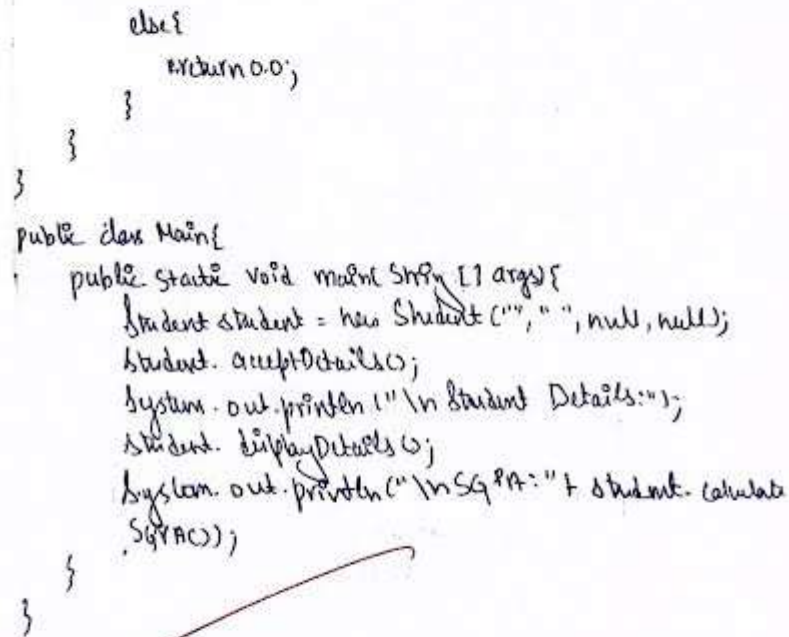 else{
return 0.0;
}
}
}
public class Main{
public static void main(String [] args){
Student student = new Student ("", " ", null, null);
student. acceptDetails();
System. out. println ("\n Student Details:");
student. displayDetails();
System. out. println ("\n SGPA:" + student. calculate
SGPA());
}
}